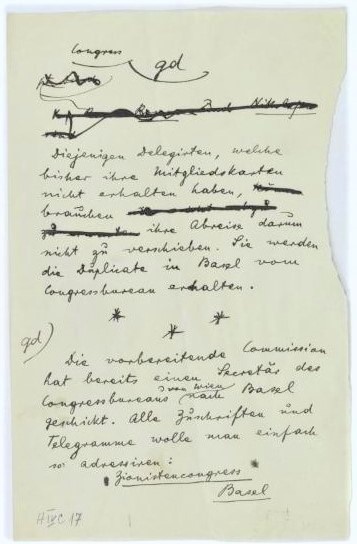 Congress
gd
Diejenigen Delegirten, welche
bisher ihre Mitgliedskarten
nicht erhalten haben,
brauchen
ihre Abreise darum
nicht zu verschieben. Sie werden
die Duplicate in Basel vom
Congressbureau erhalten.
* * *
gd)
Die vorbereitende Commission
hat bereits einen Secretär des
Congressbureaus von Wien nach Basel
geschickt. Alle Zuschriften und
Telegramme wolle man einfach
so adressiren:
Zionistencongress
Basel
H IV C 17